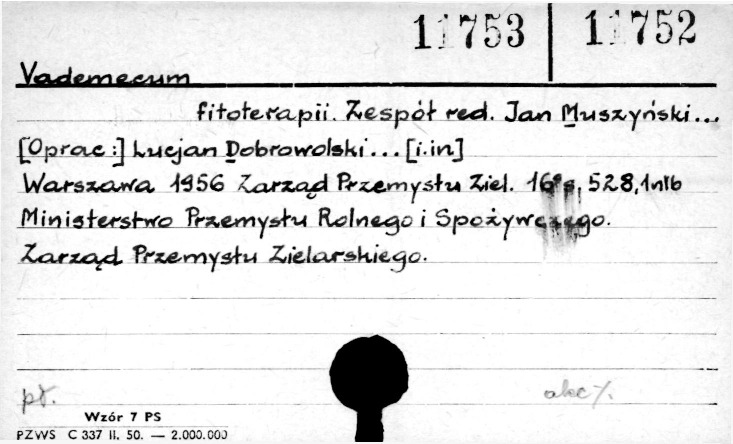 11753 11752
Vademecum
fitoterapii. Zespół red. Jan Muszyński...
[Oprac:] Lucjan Dobrowolski... [i.in]
Warszawa 1956 Zarząd Przemysłu Ziel. 16° s. 528, 1nlb
Ministerstwo Przemysłu Rolnego i Spożywczego.
Zarząd Przemysłu Zielarskiego.
pł. akc %.
Wzór 7 PS
PZWS C 337 II. 50. — 2.000.000